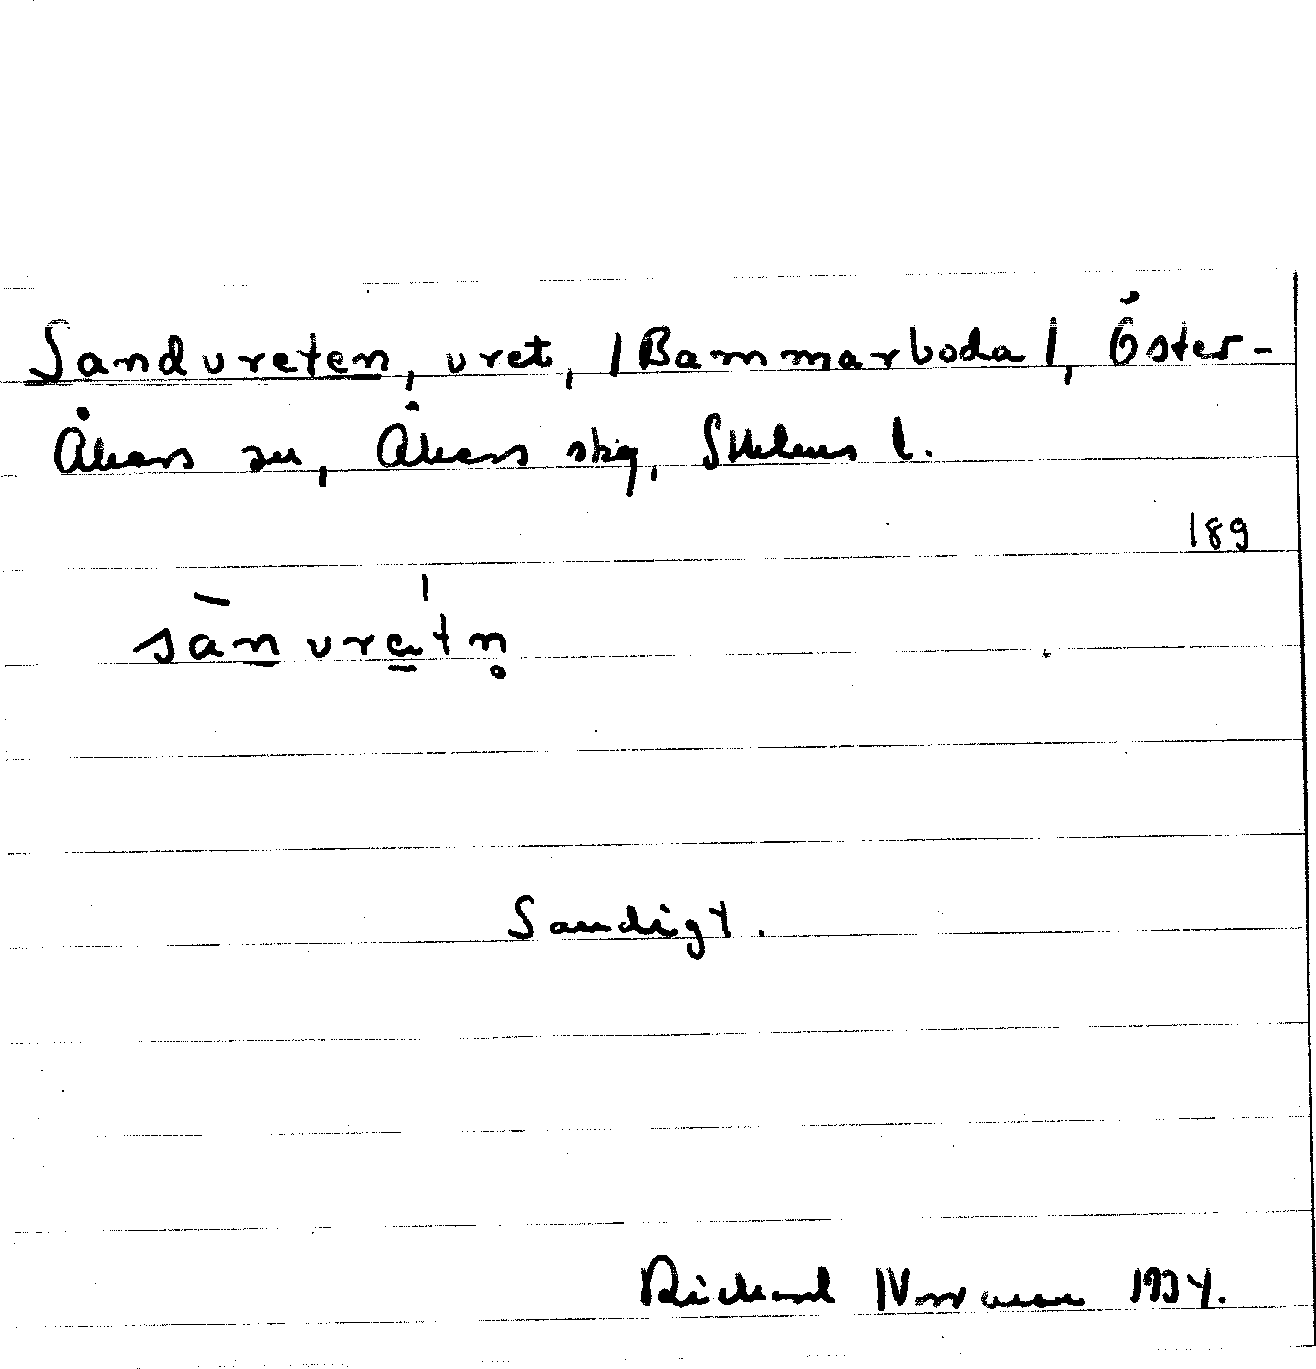 Sandvreten, vret, /Bammarboda/, Öster-
Åkers sn, Åkers skg, Sthlms l.
189
sànvretn̥
Sandigt.
Rickard 1934.